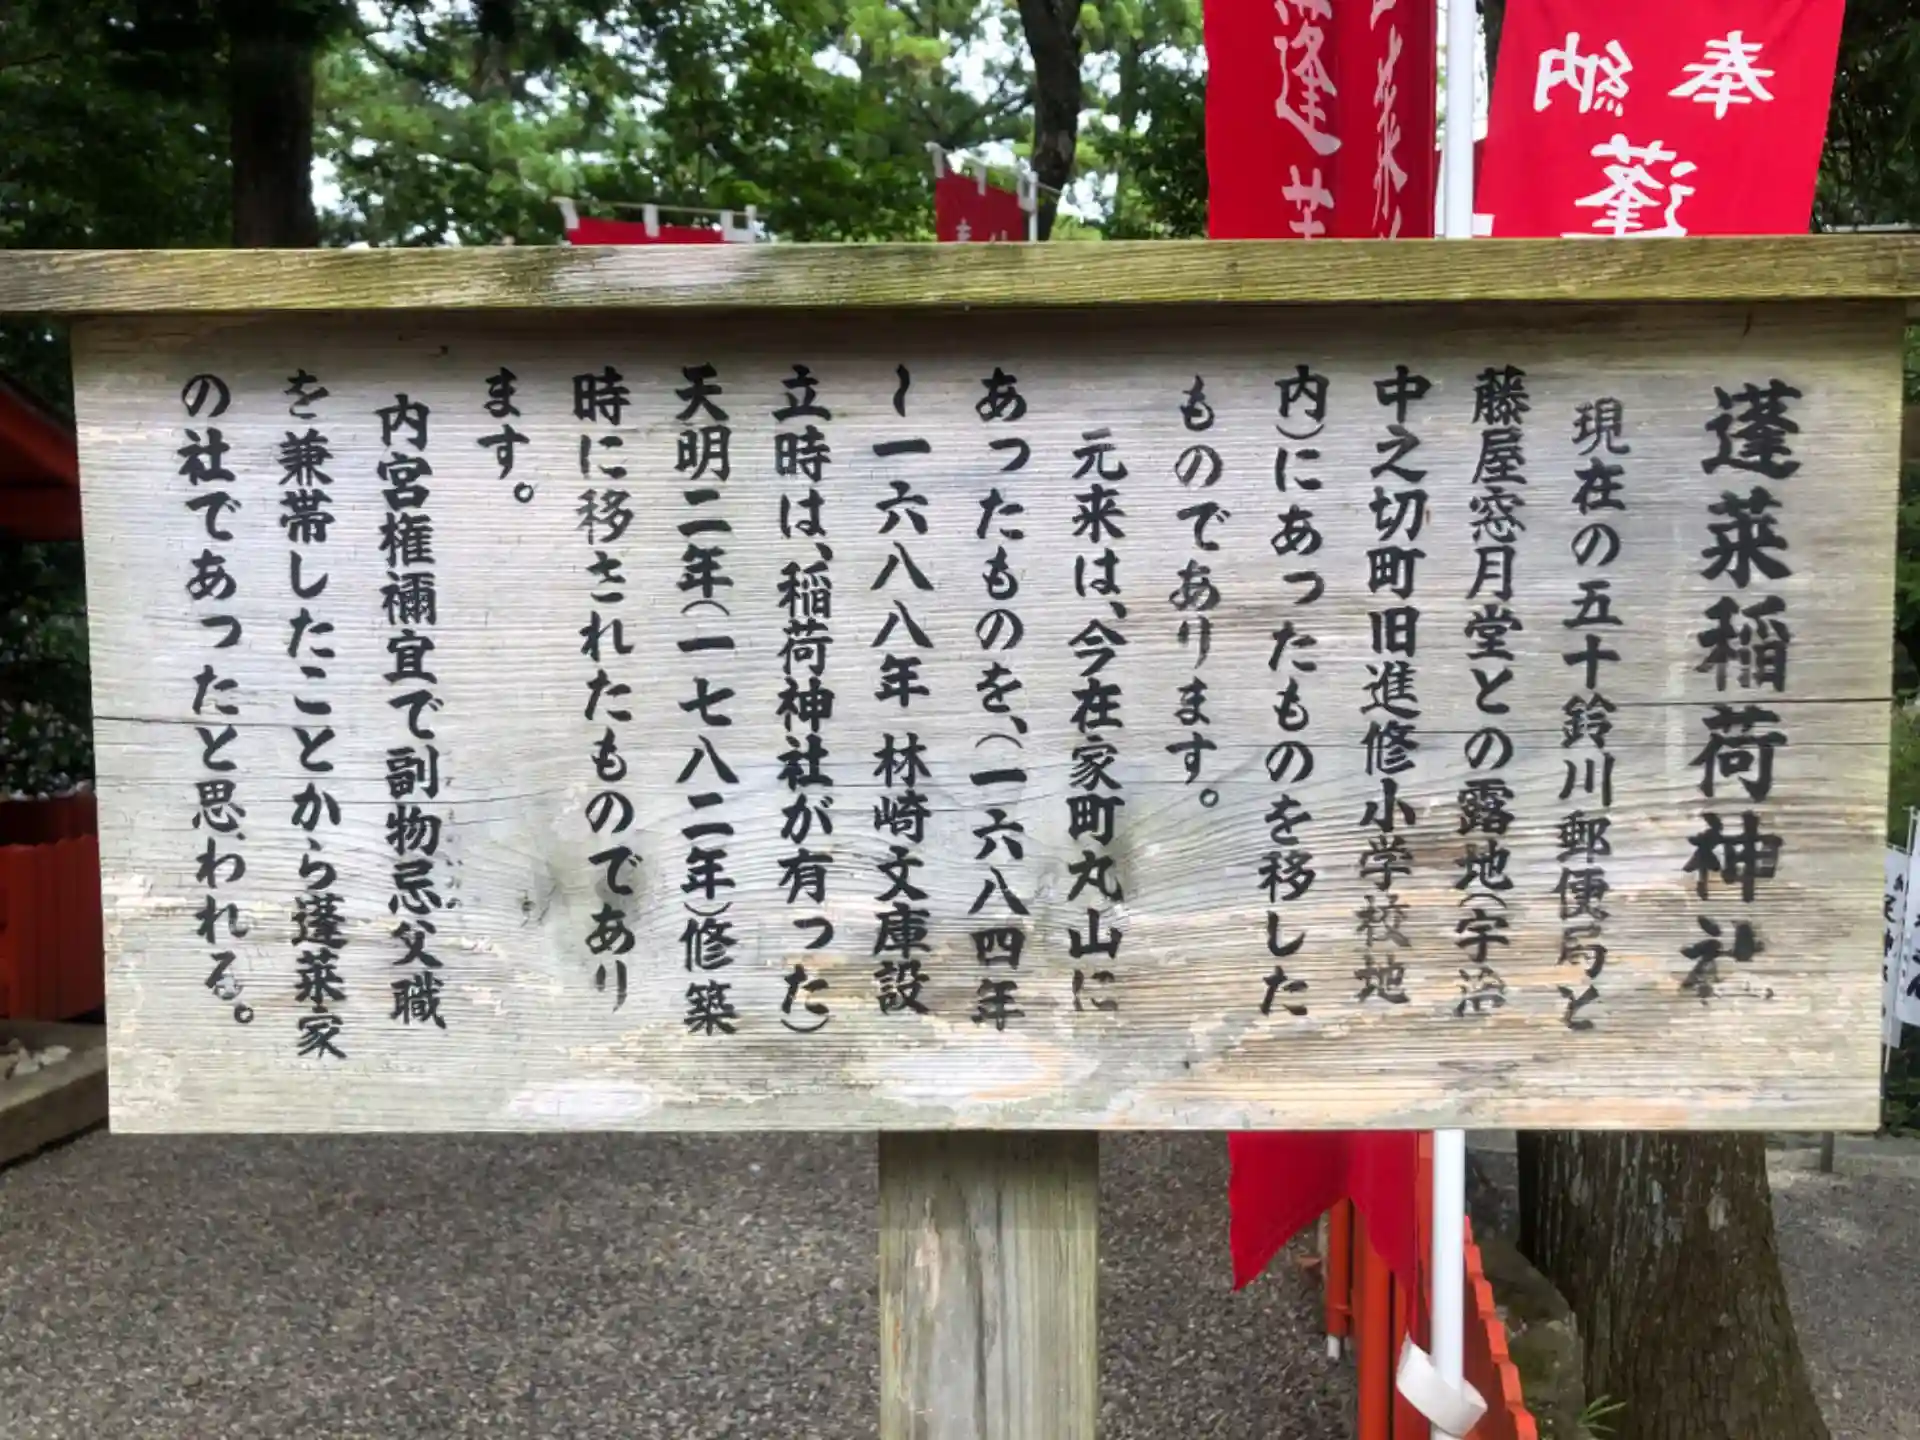 蓬莱稲荷神社
現在の五十鈴川郵便局と
藤屋窓月堂との露地(宇治
中之切町旧進修小学校地
内)にあったものを移した
ものであります。
元来は、今在家町丸山に
あったものを、(一六八四年
〜一六八八年 林崎文庫設
立時は、稲荷神社が有った)
天明二年(一七八二年)修築
時に移されたものであり
ます。
内宮権禰宜で副物忌父職
を兼帯したことから蓬莱家
の社であったと思われる。
奉納
蓬
蓬